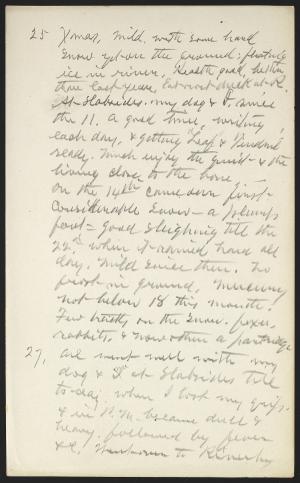 25 Xmas, Mild, with some hard
snow yet on the ground; floating
ice in river. Health good, better
than last year. Eat roast duck at R.
At Slabsides, my dog & I, since
the 11. A good time, writing
each day, & getting "Leaf & Tendril"
ready. Much enjoy the quiet & the
living close to the bone.
On the 14th came down first
considerable snow – a plump
foot – good sleighing till the
22nd when it rained hard all
day. Mild since then. No
frost in ground. Mercury
not below 18 this month.
Few tracks on the snow, foxes,
rabbits, & now & then a partridge
27, All went well with my
dog & I at Slabsides till
to-day, when I lost my grip
& in P.M. became dull &
heavy followed by fever
&c. Went down to Riverby